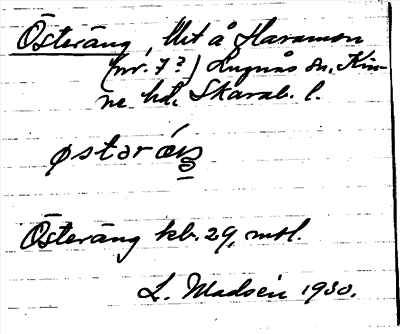 Österäng, lht å Haramon
(nr. 7?) Lugnås sn, Kin-
ne hd, Skarab. l.
østəräŋ
Österäng kb. 29, mtl.
L. Madsén 1930.